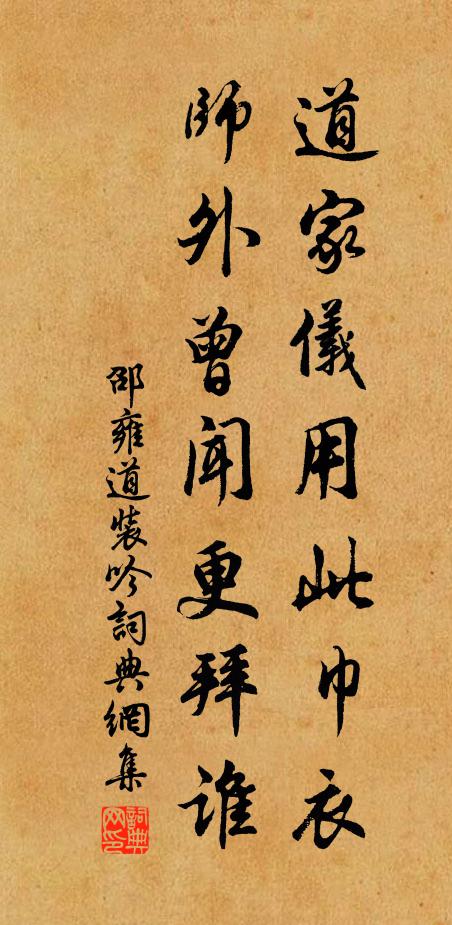 道家儀用此巾衣
師外曾聞更拜誰
邵雍道裝吟詞典網集
詞典網印